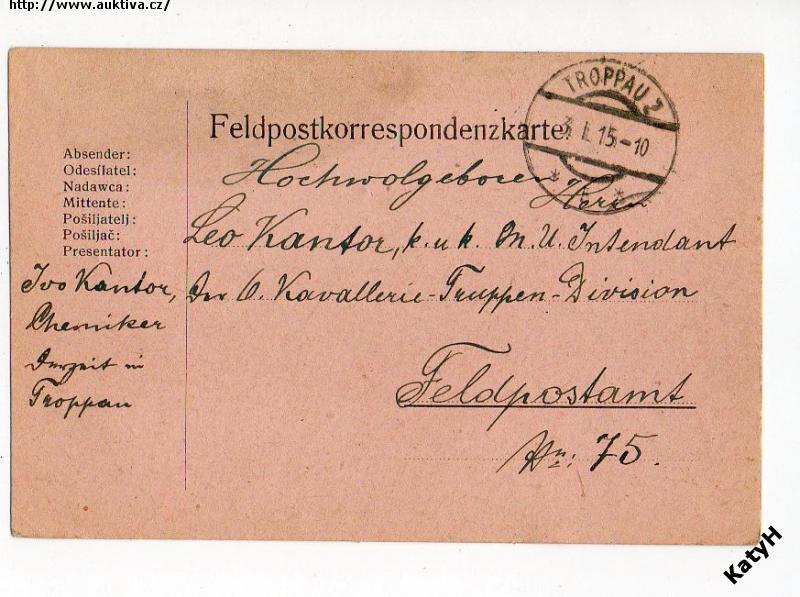 http://www.auktiva.cz/
TROPPAU 2
3. I. 15.-10
Feldpostkorrespondenzkarte.
Absender:
Odesílatel:
Nadawca:
Mittente:
Pošiljatelj:
Pošiljač:
Presentator:
Ivo Kantor,
Chemiker
Derzeit in
Troppau
Hochwolgeboren Herrn
Leo Kantor, k. u. k. M. U. Intendant
Der 6. Kavallerie-Truppen-Division
Feldpostamt
Nr: 75.
KatyH